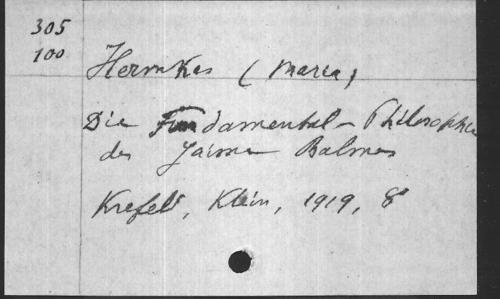 305
100
Hermkes (Maria)
Die Fundamental-Philosophie
des Jaime Balmes
Krefeld, Klein, 1919, 8°